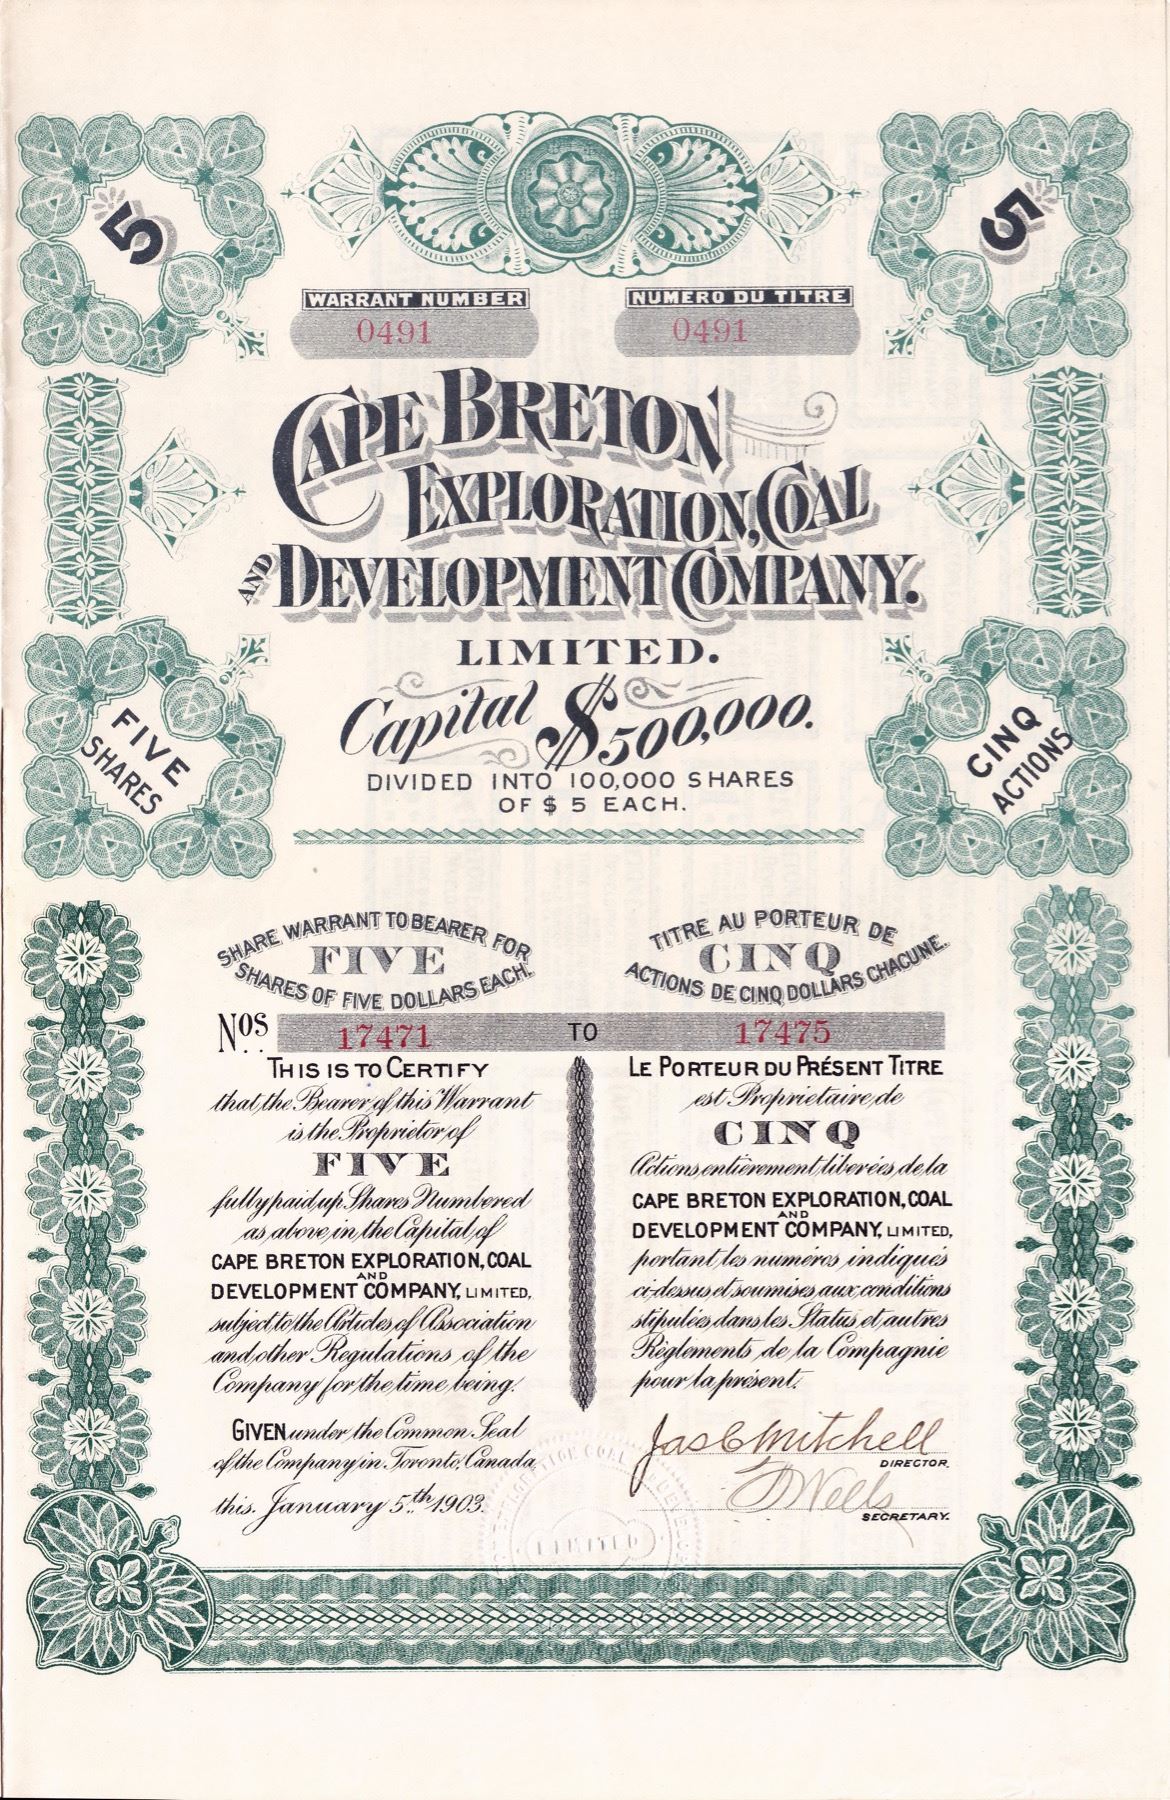 5
5
WARRANT NUMBER
0491
NUMERO DU TITRE
0491
CAPE BRETON
EXPLORATION, COAL
AND DEVELOPMENT COMPANY.
LIMITED.
Capital $500,000.
DIVIDED INTO 100,000 SHARES
OF $ 5 EACH.
FIVE
SHARES
CINQ
ACTIONS
SHARE WARRANT TO BEARER FOR
FIVE
SHARES OF FIVE DOLLARS EACH.
TITRE AU PORTEUR DE
CINQ
ACTIONS DE CINQ DOLLARS CHACUNE.
Nos 17471 TO 17475
THIS IS TO CERTIFY
that the Bearer of this Warrant
is the Proprietor of
FIVE
fully paid up Shares Numbered
as above in the Capital of
CAPE BRETON EXPLORATION, COAL
AND
DEVELOPMENT COMPANY, LIMITED,
subject to the Articles of Association
and other Regulations of the
Company for the time being.
GIVEN under the Common Seal
of the Company in Toronto, Canada,
this January 5th 1903.
LE PORTEUR DU PRÉSENT TITRE
est Propriétaire de
CINQ
Actions entièrement libérées de la
CAPE BRETON EXPLORATION, COAL
AND
DEVELOPMENT COMPANY, LIMITED,
portant les numéros indiqués
ci-dessus et soumises aux conditions
stipulées dans les Status et autres
Réglements de la Compagnie
pour la présent.
Jas C Mitchell
DIRECTOR.
Wells
SECRETARY.
LIMITED